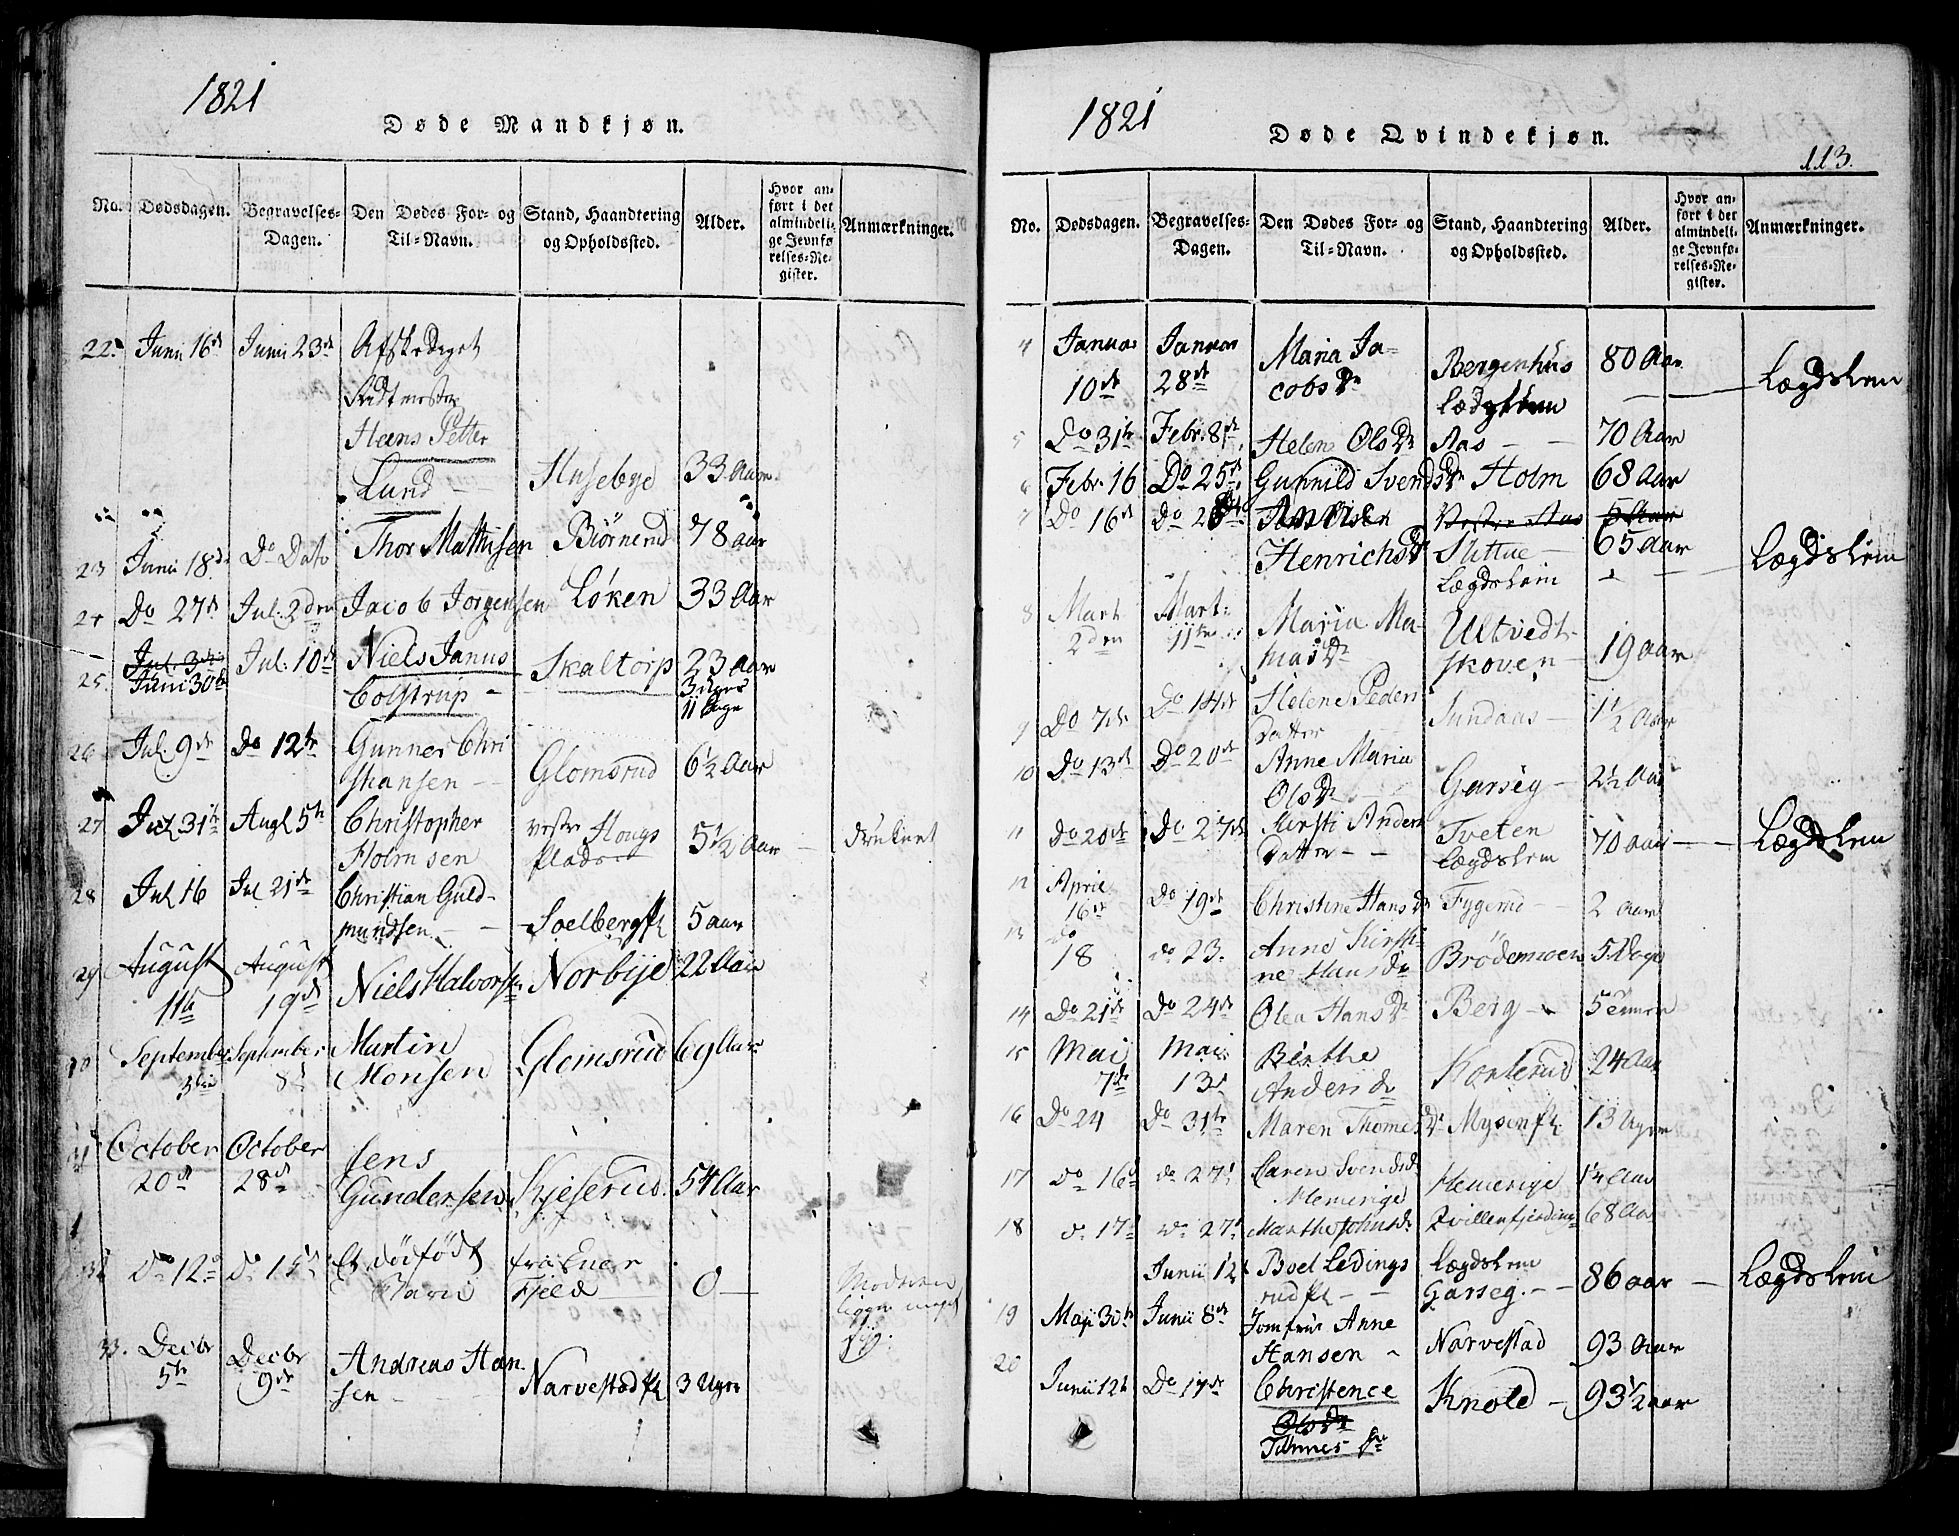 1821
Døde Mandkjøn.
No. Dødsdagen. Begravelses-Dagen. Den Dødes For- og Til-Navn. Stand, Haandtering og Opholdssted. Alder. Hvor anført i det almindelige Jevnførelses-Register. Anmærkninger.
22. Junii 16de Junii 23de Afskediget
Hans Petter
Lund Husebye 33 Aar
23 Junii 18de Do Dato Thor Mathisen Biørnerud 78 aar
24 Do 27de Jul. 2den Jacob Jørgensen Løken 33 Aar
25. Jul. 3die Junii 30te Jul. 10de Niels Janus
Colstrup Skaltorp 23 aar
3 uger
11 Dage
26 Jul. 9de Do 12te Gunner Christiansen Glomsrud 6 1/2 Aar
27 Jul 31te Augt 5te Christopher
Holmsen vestre Hougs
Plads 5 1/2 Aar druknet
28 Jul 16 Jul 21de Christian Guldmundsen Soelberg 5 aar
29 August
11te August
19de Niels Halvorsen Norbye 22 Aar
30 September
3die September
8de Martin
Monsen Glomsrud 69 Aar
31 October
20de October
28de Jens
Gundersen Kjeserud 54 Aar
32 Do 12te Do 15de Et dødfødt
Barn fra Euer
Fjeld 0 Moderen
ligger meget
syg.
33. Decbr
5te Decbr
9de Andreas Hansen Narvestad 3 Uger
1821
Døde Qvindekjøn.
113.
No. Dødsdagen. Begravelses-Dagen. Den Dødes For- og Til-Navn. Stand, Haandtering og Opholdssted. Alder. Hvor anført i det almindelige Jevnførelses-Register. Anmærkninger.
4 Januar
10de Januar
28de Maria Jacobs Dr Bergenhus
Lægdslem 80 Aar Lægdslem
5 Do 31te Febr. 8de Helene Ols Dr Aas 70 Aar
6 Febr. 16 Do 25de Gunnild Svends Dr Holm 68 Aar
7 Do 16de Do
Henrichs Dr Vestre Aas
Slittue
Lægdslem 5 Aar
65 Aar Lægdslem
8 Mart
2den Mart.
11te Maria Mamas Dr Ultvedt
skoven 19 aar
9 Do 7de Do 14de Helene Peders
Datter Sundaas 1 1/2 Aar
10 Do 13de Do 20de Anne Maria
Ols Dr Garseg 2 1/2 Aar
11 Do 20de Do 27de Kirsti Anders
Datter Tveten
Lægdslem 70 aar Lægdslem
12 April
16de Do 19de Christine Hans Dr 2 aar
13 do
18 do 23. Anne Kirstine Hans Dr Brødemoen 5 Dage
14 Do 21de Do 24de Olea Hans Dr Berg
15 Mai
7de Mai
13de Birthe
Anders Dr 24 Aar
16 Do 24 Do 31te Maren Thomes Dr Mysen 13 Uger
17 Do 16de do 27de Caren Svends Dr
Hemerige Hemerige
18 Do 17de Do 27de Marthe Johns Dr 68 Aar
Junii 12te Boel Ledingsrud Lægdslem
Garseg. 86 aar Lægdslem
19 Maji 30te Junii 8de Jomfrue Anne
Hansen Narvestad 93 Aar
20 Junii 12te Do 17de Christence
Ols Dr
Knold 93 1/2 aar